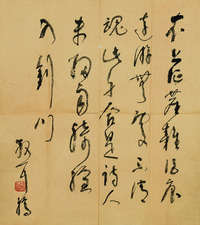 衣上征塵雜酒痕
遠游無處不消
魂此身合是詩人
未細雨騎驢
入劍門